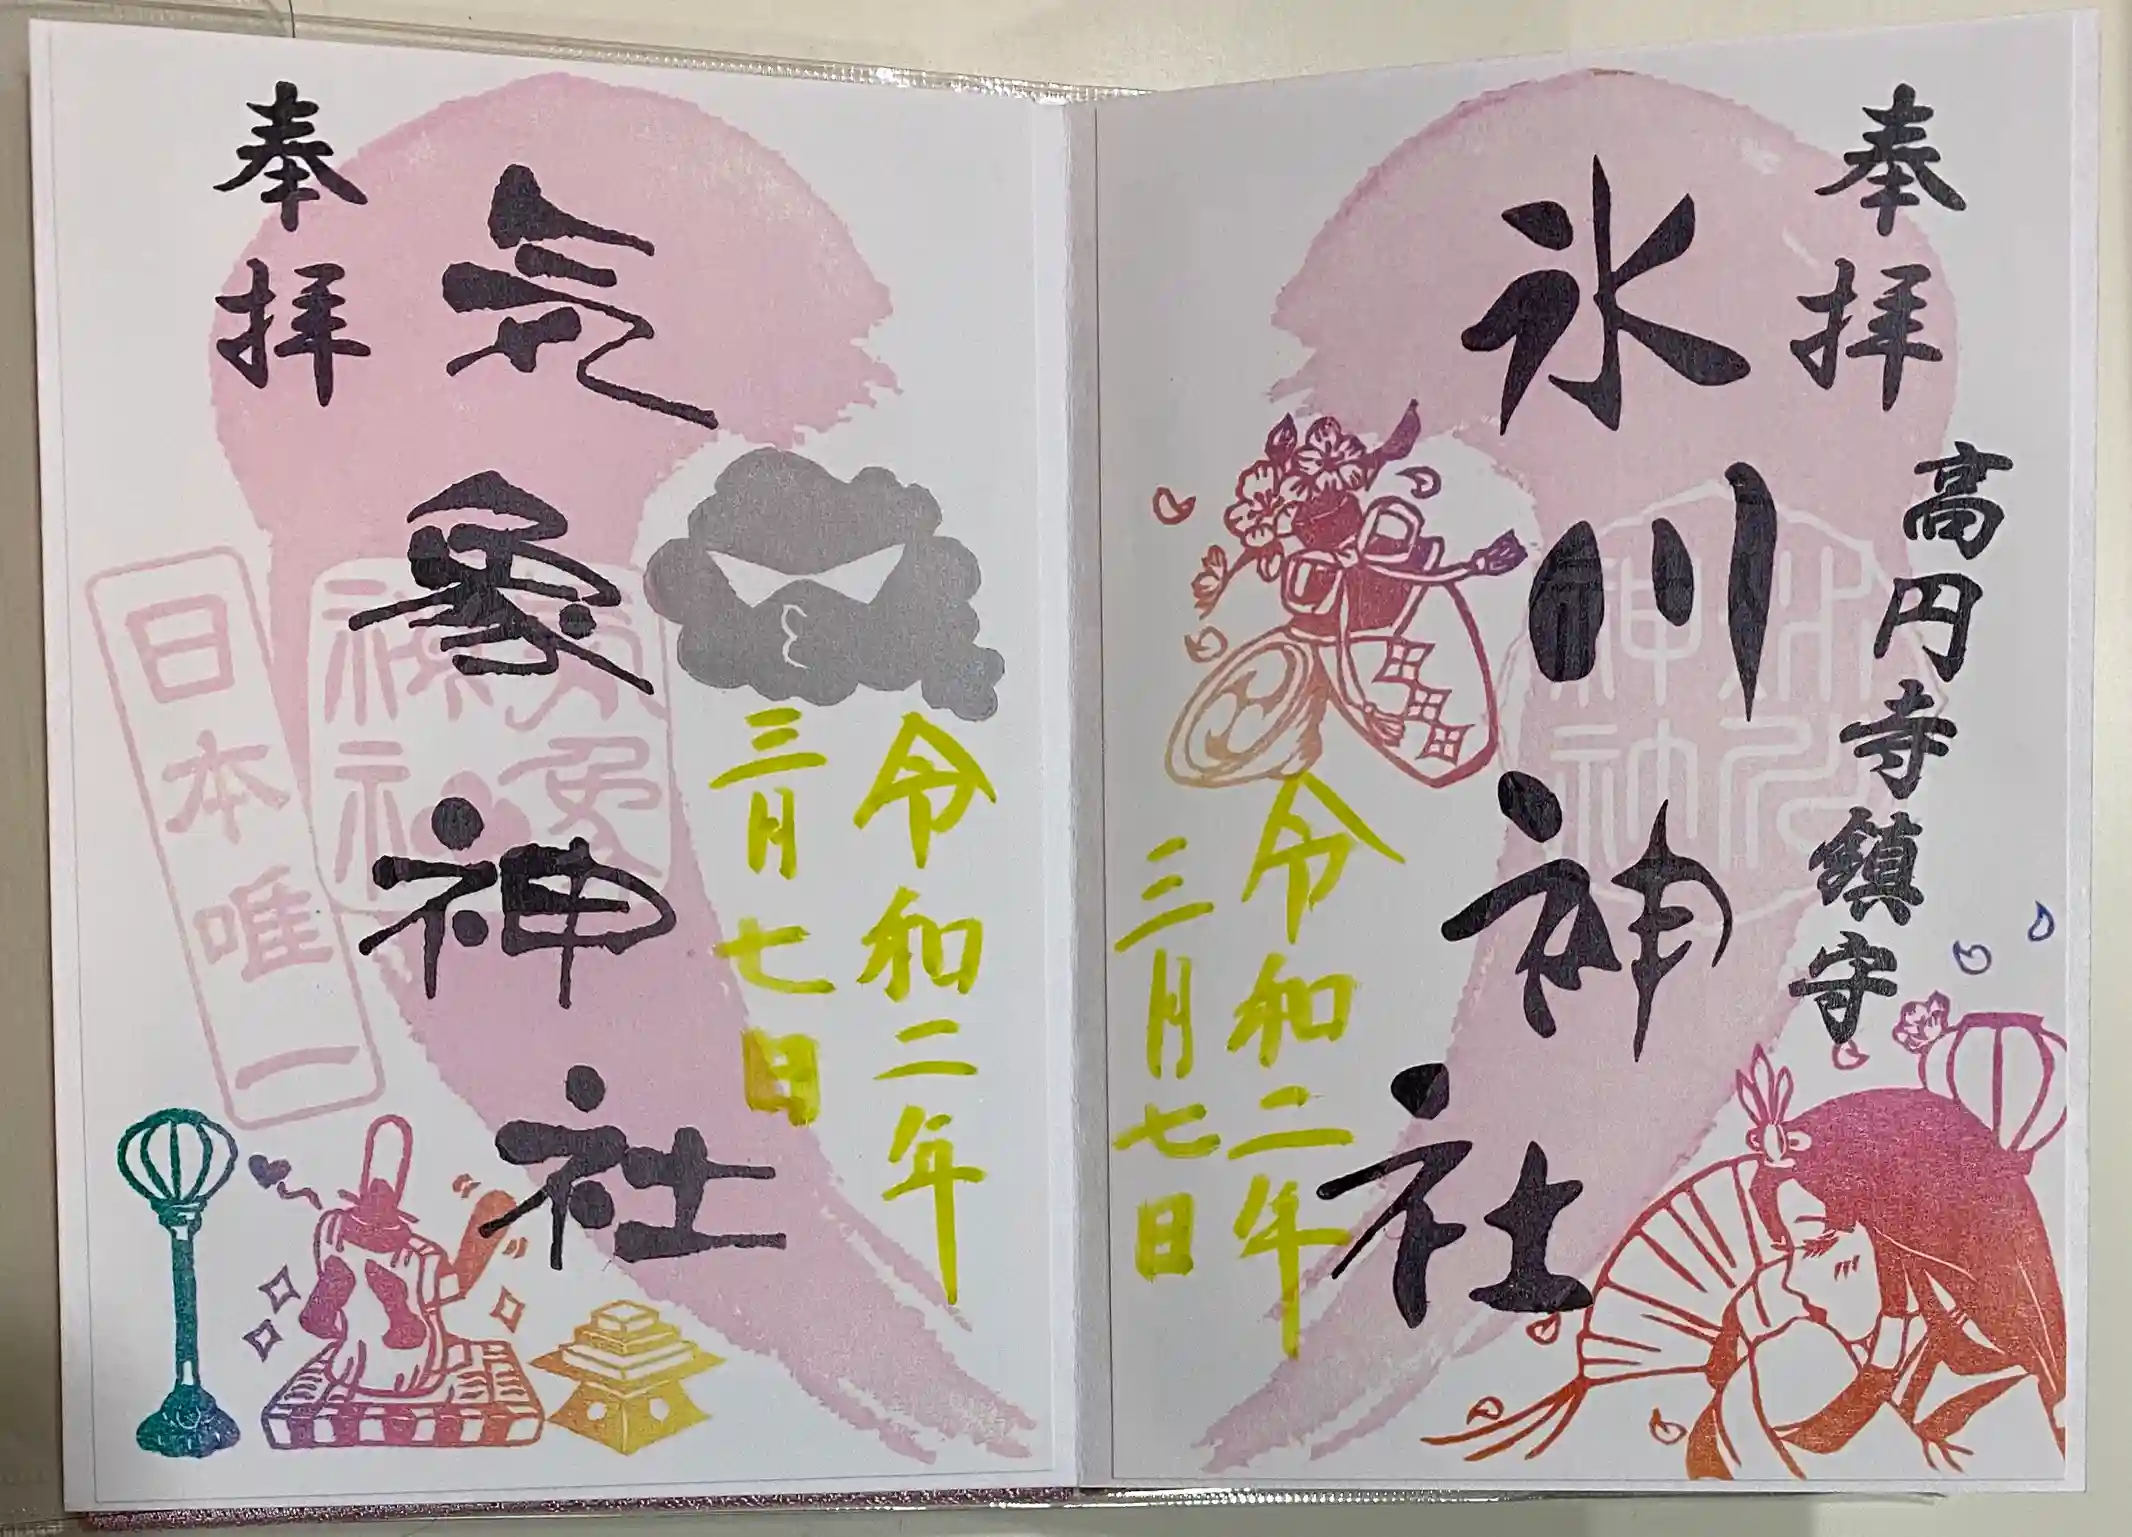 奉拝
高円寺鎮守
氷川神社
令和二年
三月七日
奉拝
気象神社
日本唯一
令和二年
三月七日